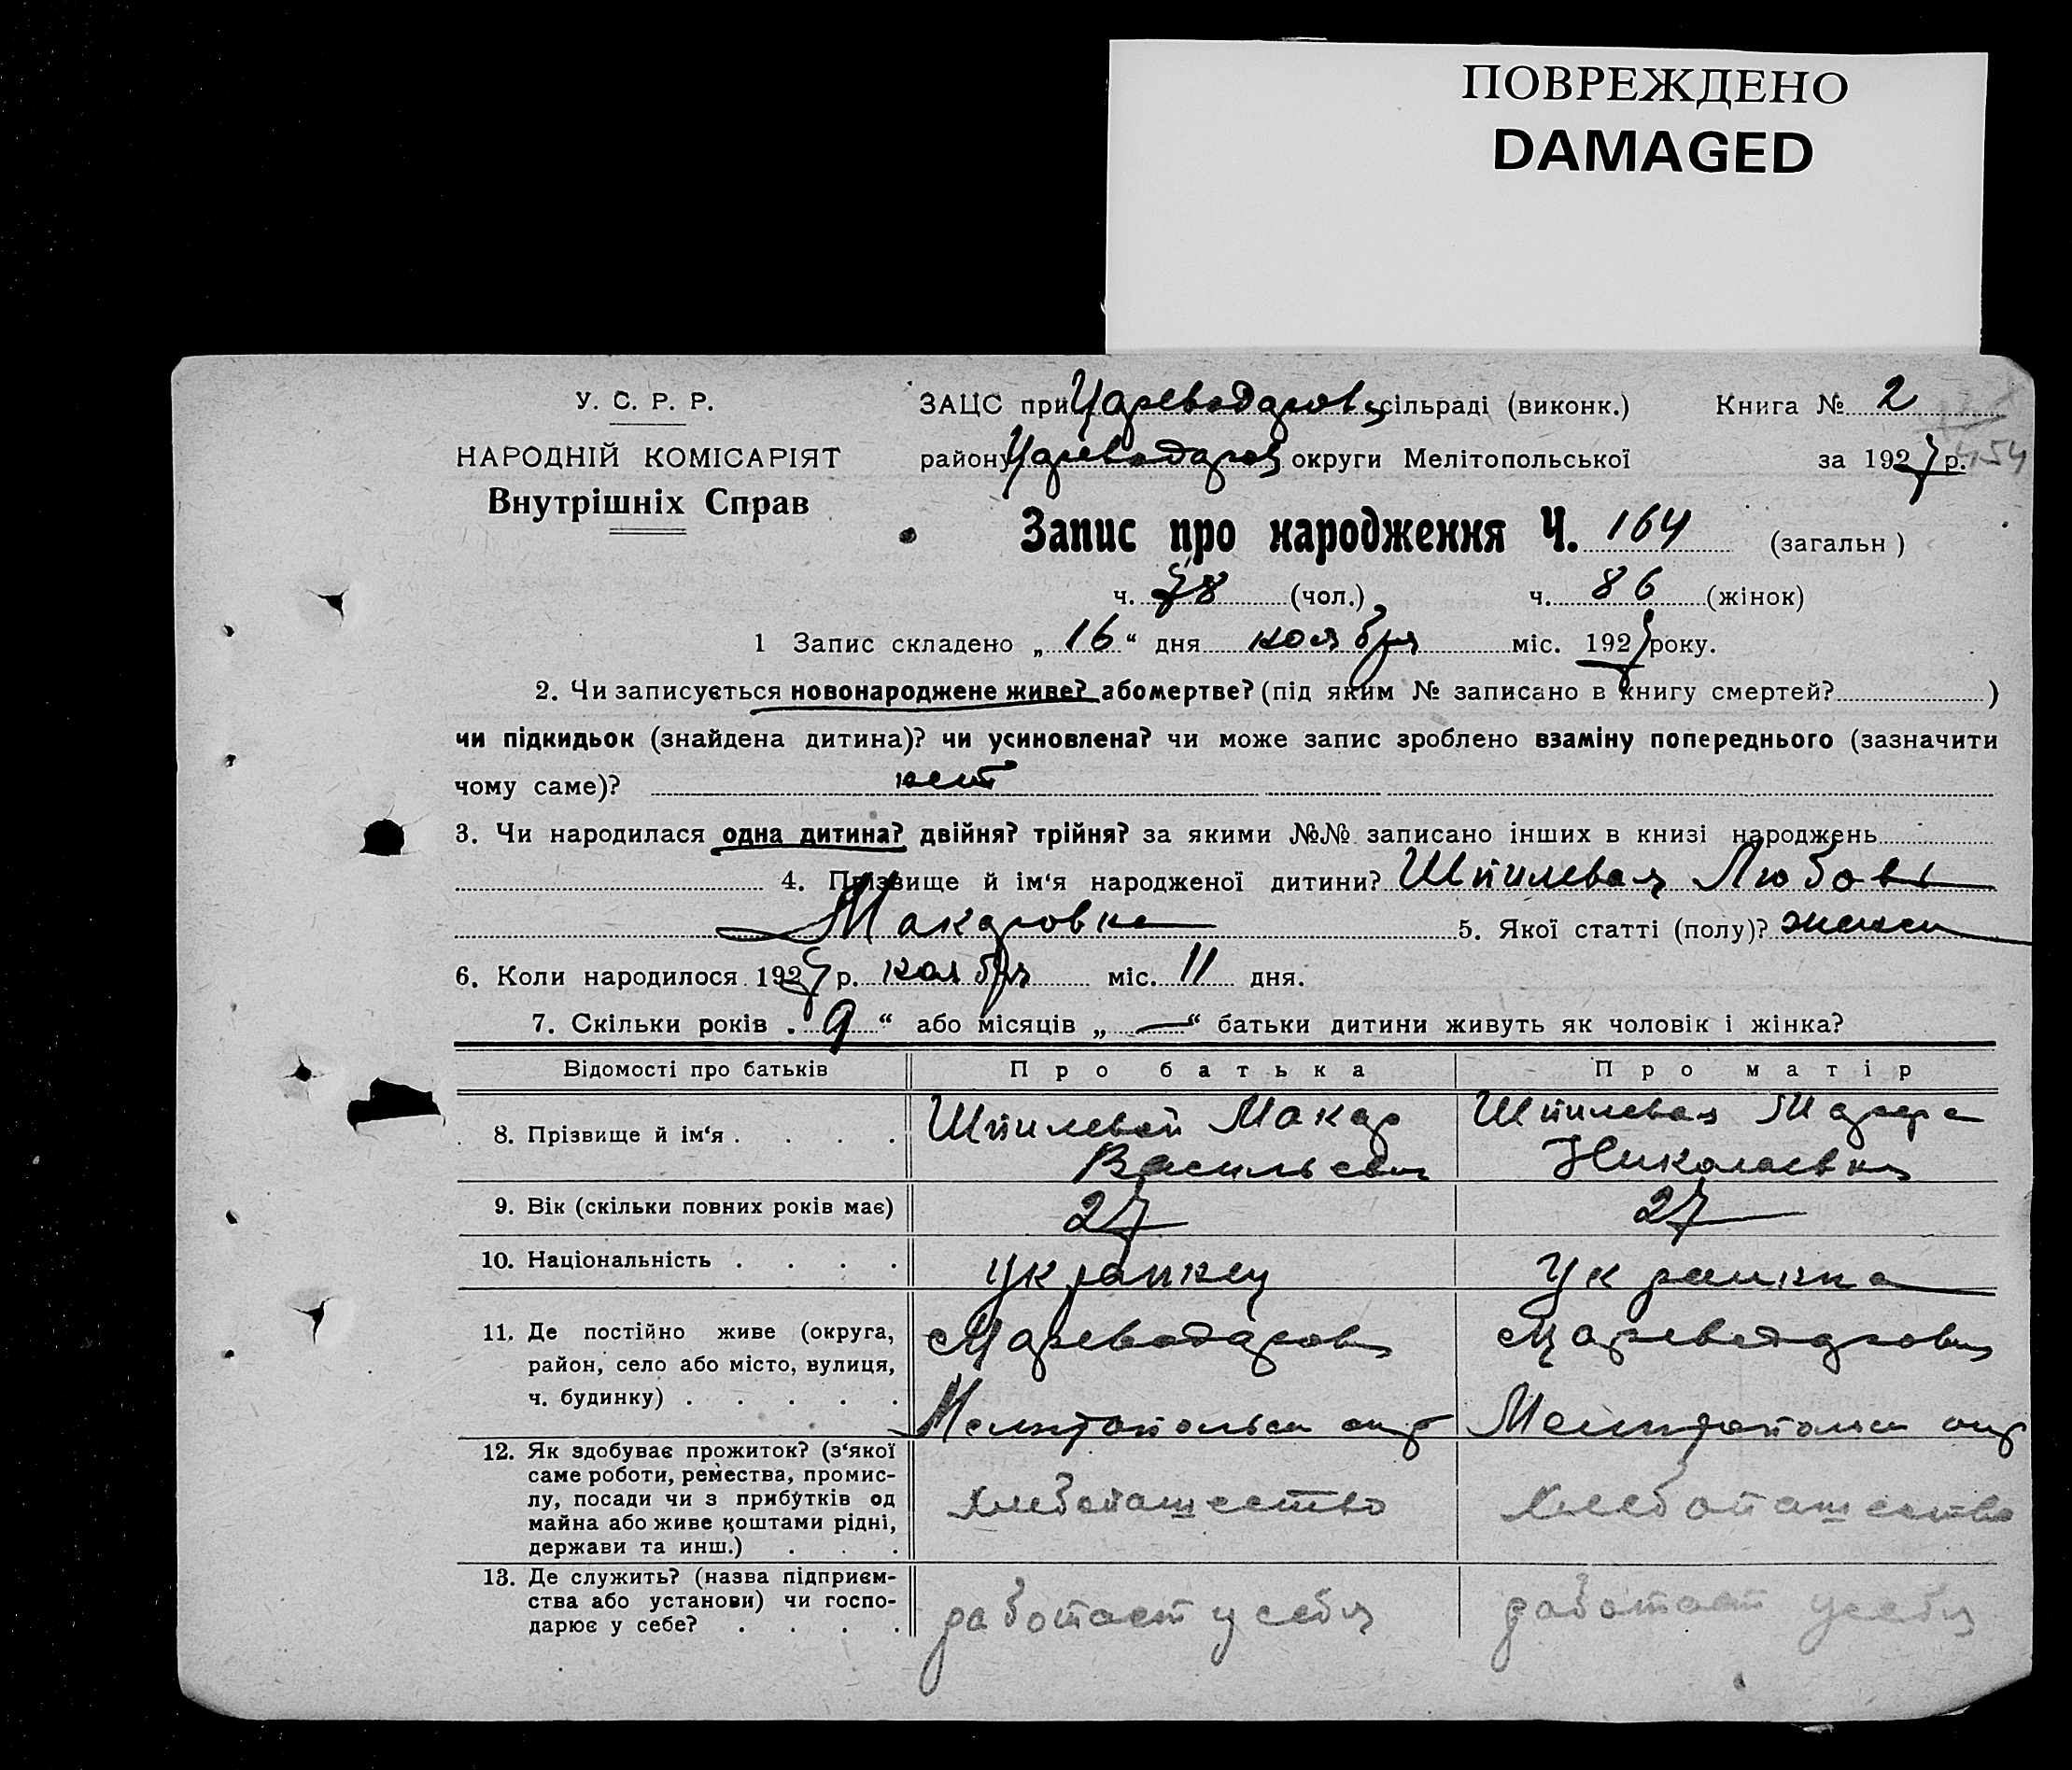 ПОВРЕЖДЕНО
DAMAGED
У. С. Р. Р.
НАРОДНІЙ КОМІСАРІЯТ
Внутрішніх Справ
ЗАЦС при Цареводаровс сільраді (виконк.) Книга № 2
району Цареводаров округи Мелітопольської за 1927 р. 454
Запис про народження Ч. 164 (загальн)
ч. 78 (чол.) ч. 86 (жінок)
1 Запис складено „16“ дня ноября міс. 1927 року.
2. Чи записується новонароджене живе? або мертве? (під яким № записано в книгу смертей? )
чи підкидьок (знайдена дитина)? чи усиновлена? чи може запис зроблено взаміну попереднього (зазначити
чому саме)? нет
3. Чи народилася одна дитина? двійня? трійня? за якими №№ записано інших в книзі народжень
4. Прізвище й ім‘я народженої дитини? Шпилевая Любовь
Макаровна 5. Якої статті (полу)? женск
6. Коли народилося 1927 р. ноября міс. 11 дня.
7. Скільки років „9“ або місяців „—“ батьки дитини живуть як чоловік і жінка?
Відомості про батьків Про батька Про матір
8. Прізвище й ім‘я . . . . Шпилевой Макар Васильевич Шпилевая Николаевна
9. Вік (скільки повних років має) 27 27
10. Національність . . . . украинец украинка
11. Де постійно живе (округа,
район, село або місто, вулиця,
ч. будинку) . . . . .
с Цареводаровк
Мелитопольск окр
с Цареводаровк
Мелитопольск окр
12. Як здобуває прожиток? (з‘якої
саме роботи, ремества, промис-
лу, посади чи з прибутків од
майна або живе коштами рідні,
держави та инш.) . . .
хлебопашество хлебопашество
13. Де служить? (назва підприєм-
ства або установи) чи госпо-
дарює у себе? . . . .
работает у себя работает у себя